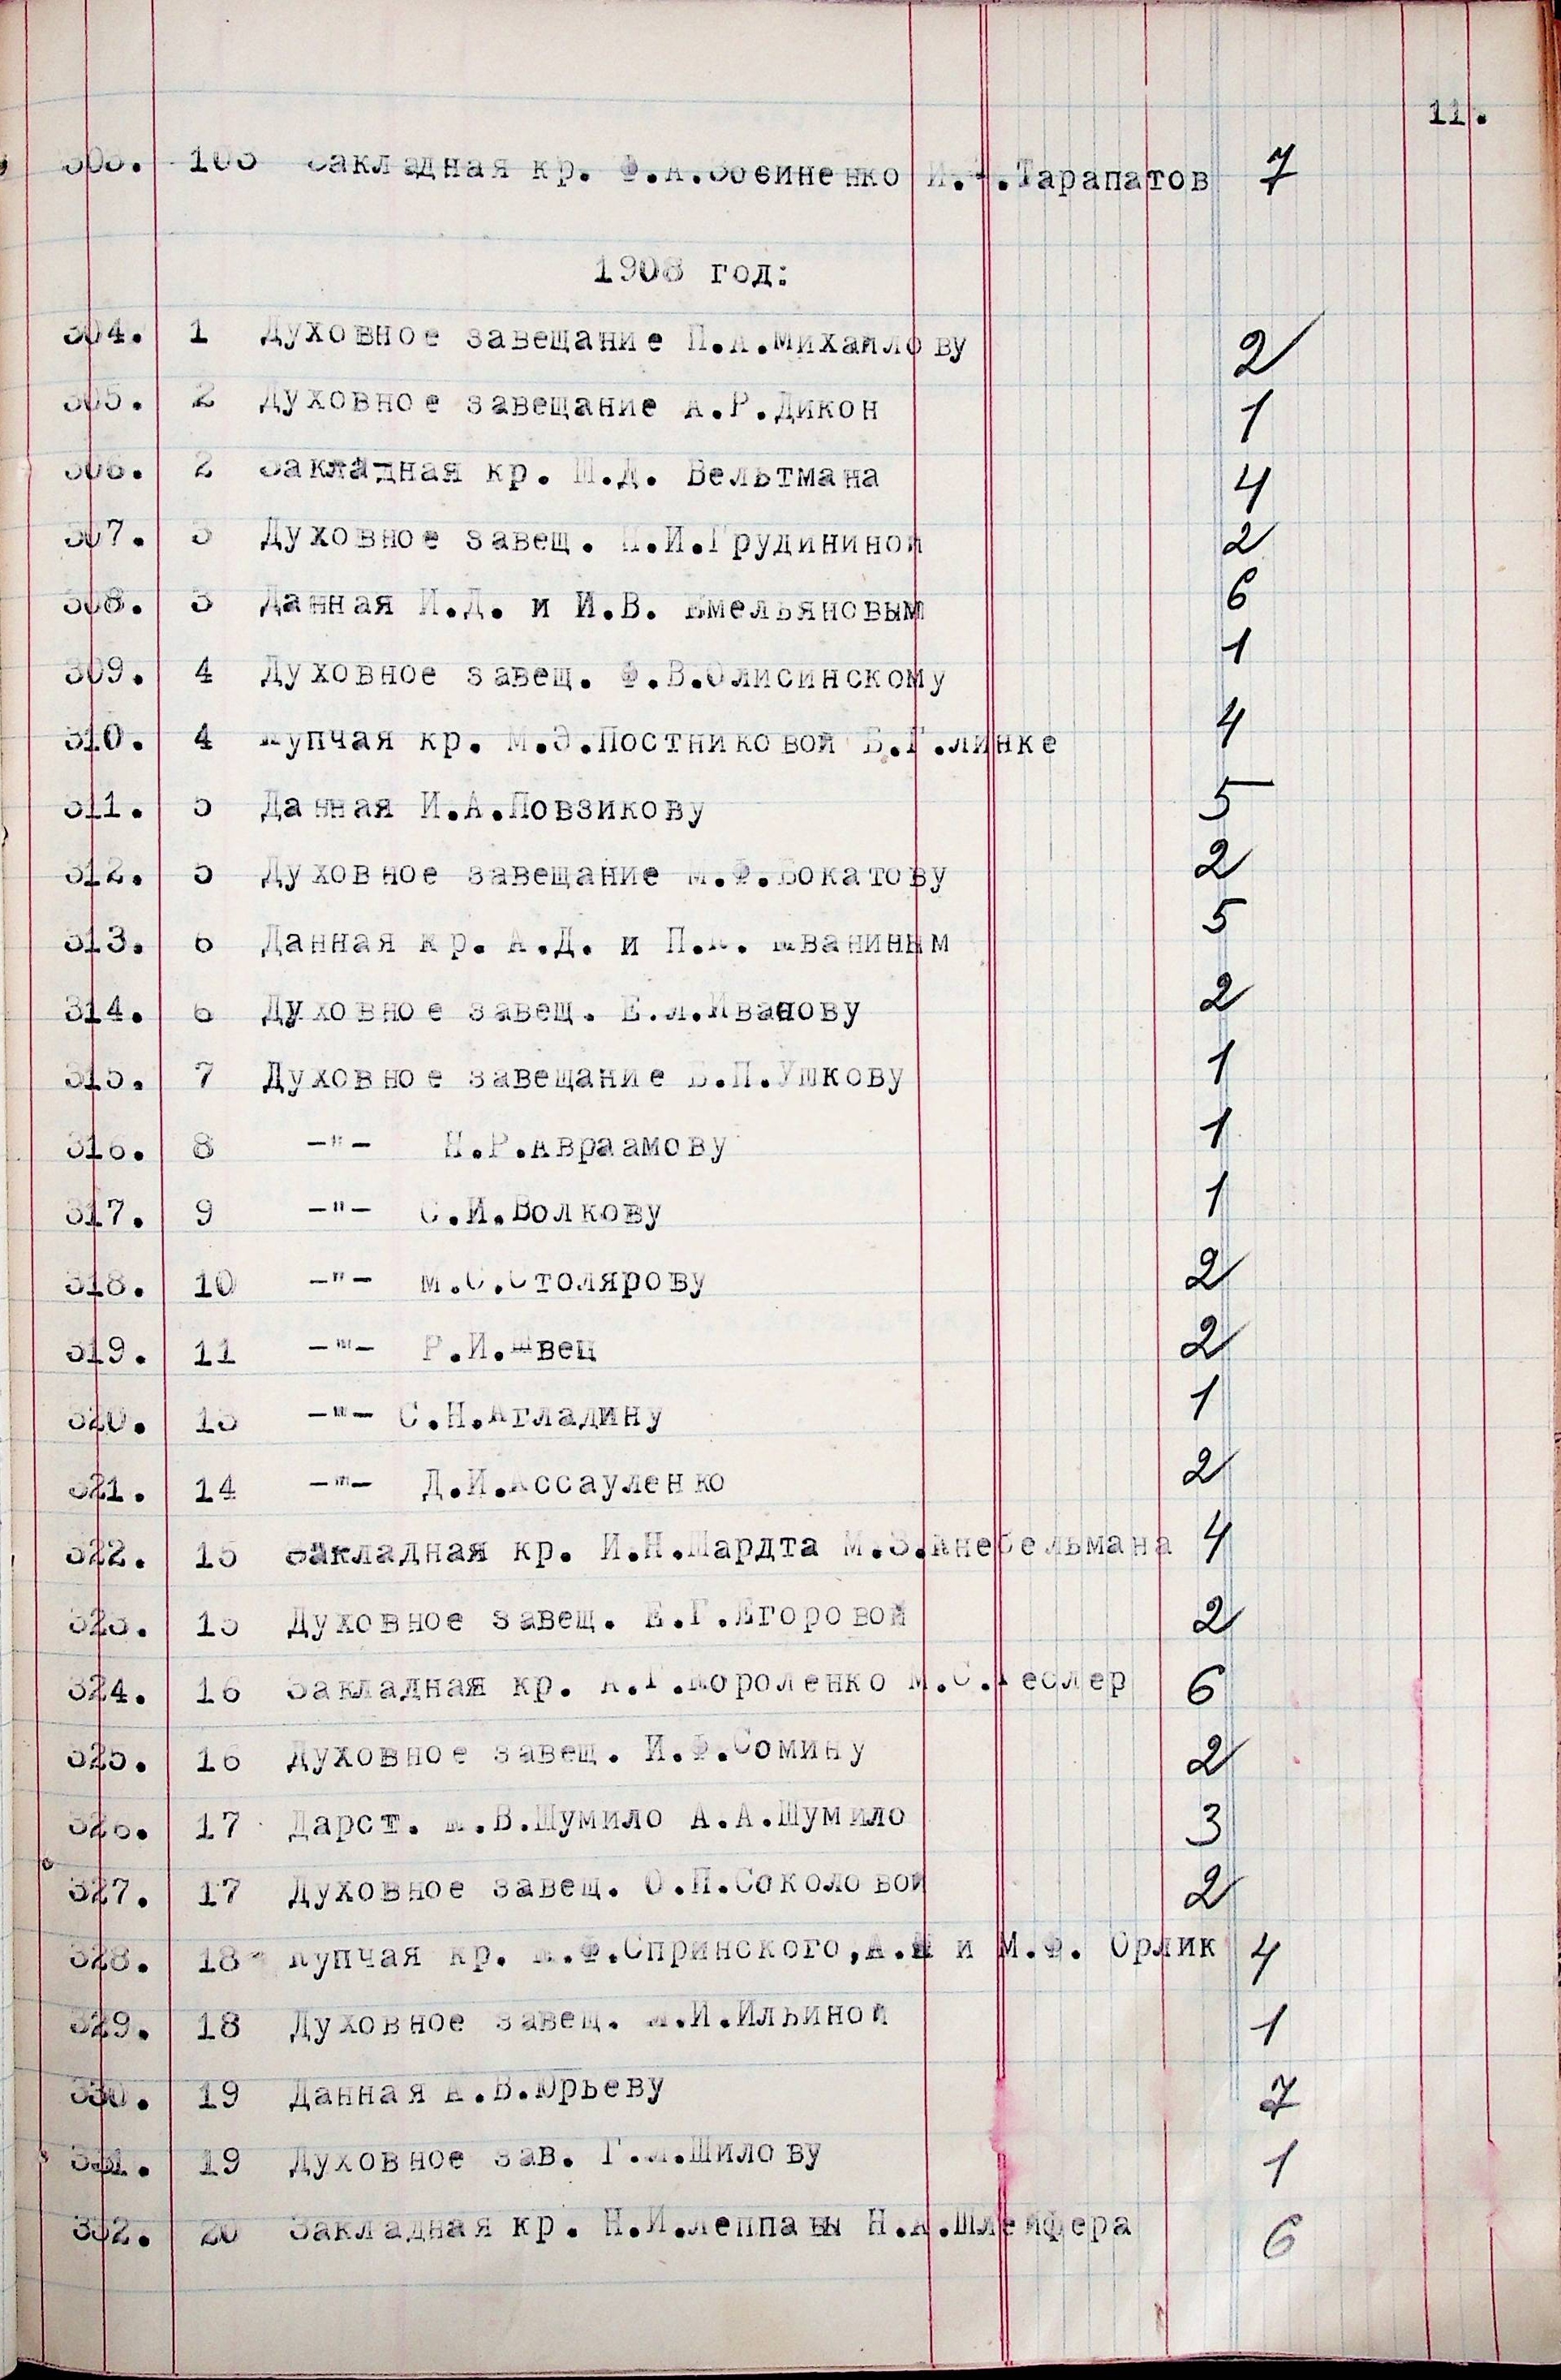 11.
303. 103 Закладная кр. Ф.А. Тарапатов 7
1908 год:
304. 1 Духовное завещание П.А.Михайлову 2
305. 2 Духовное завещание А.Р.Дикон 1
306. 2 Закладная кр. Ш.Д. Вельтмана 4
307. 3 Духовное завещ. П.И.Грудининой 2
308. 3 Данная И.Д. и И.В. Емельяновым 6
309. 4 Духовное завещ. Ф.В.Олисинскому 1
310. 4 Купчая кр. М.Э.Постниковой Б.Г.Линке 4
311. 5 Данная И.А.Повзикову 5
312. 5 Духовное завещание М.Ф.Бокатову 2
313. 6 Данная кр. А.Д. и 5
314. 6 Духовное завещ. Е.Л.Иванову 2
315. 7 Духовное завещание В.П.Ушкову 1
316. 8 -"- Н.Р.Авраамову 1
317. 9 -"- С.И.Волкову 1
318. 10 -"- М.С.Столярову 2
319. 11 -"- Р.И.Швец 2
320. 13 -"- С.Н.Агладину 1
321. 14 -"- Д.И.Ассауленко 2
322. 15 Закладная кр. И.Н.Шардта М.З.Кнебельмана 4
323. 15 Духовное завещ. Е.Г.Егоровой 2
324. 16 Закладная кр. А.Г.Короленко М.С.Геслер 6
325. 16 Духовное завещ. И.Ф.Сомину 2
326. 17 Дарст. В.Шумило А.А.Шумило 3
327. 17 Духовное завещ. О.П.Соколовой 2
328. 18 Купчая кр. Ф.Спринского, и М.Ф. Орлик 4
329. 18 Духовное завещ. И.Ильиной 1
330. 19 Данная В.Юрьеву 7
331. 19 Духовное зав. Шилову 1
332. 20 Закладная кр. Н.И.Леппаны Н.А.Шлейфера 6